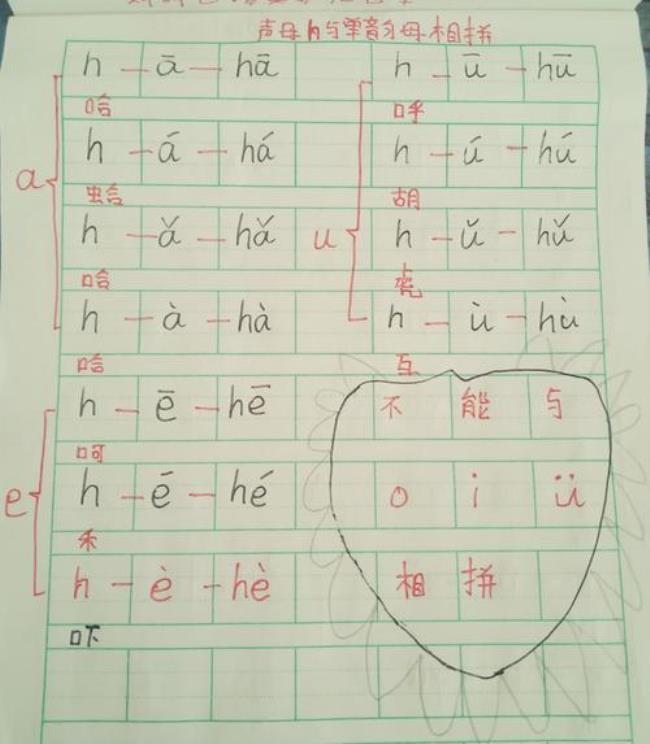 声母h与单韵母相拼
h — ā — hā h — ū — hū
哈 呼
h — á — há h — ú — hú
a 虫合 胡
h — ǎ — hǎ u h — ǔ — hǔ
哈 虎
h — à — hà h — ù — hù
哈 互
h — ē — hē 不 能 与
呵
e h — é — hé o i ü
禾
h — è — hè 相 拼
吓